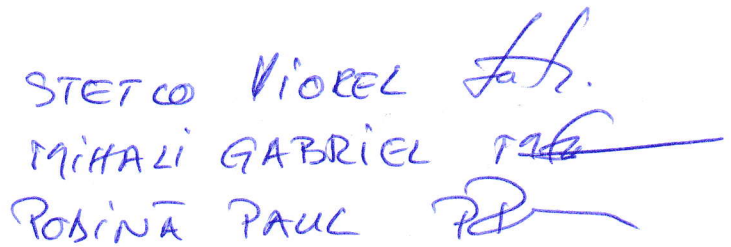 STETCO VIOREL
MIHALI GABRIEL
PODINĂ PAUL